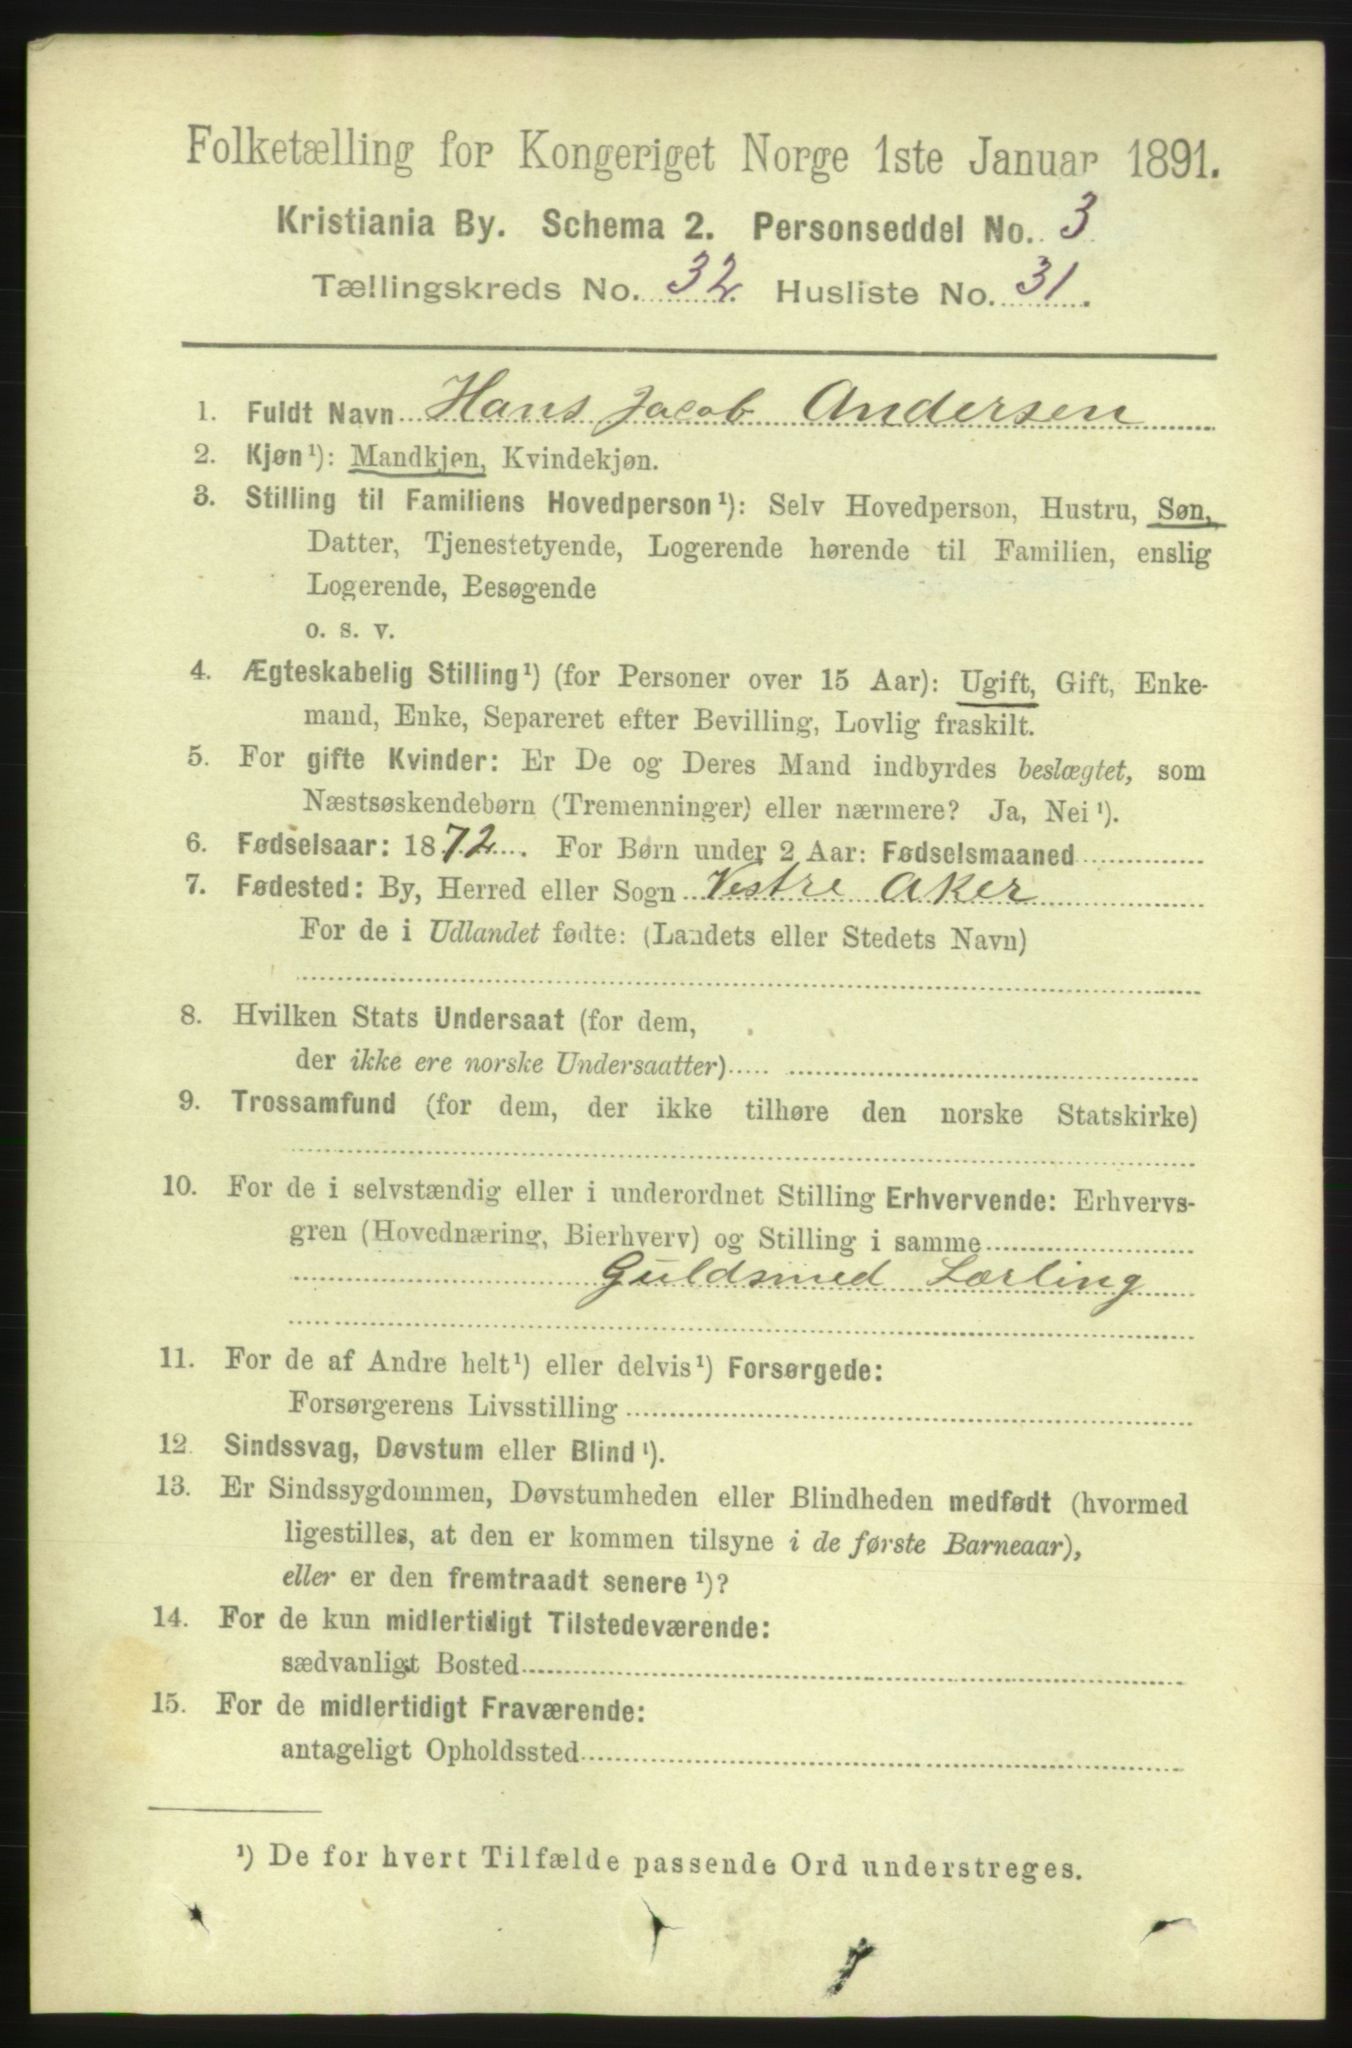 Folketælling for Kongeriget Norge 1ste Januar 1891.
Kristiania By. Schema 2. Personseddel No. 3.
Tællingskreds No. 32. Husliste No. 31.
1. Fuldt Navn Hans Jacob Andersen
2. Kjøn¹): Mandkjøn, Kvindekjøn.
3. Stilling til Familiens Hovedperson¹): Selv Hovedperson, Hustru, Søn,
Datter, Tjenestetyende, Logerende hørende til Familien, enslig
Logerende, Besøgende
o. s. v.
4. Ægteskabelig Stilling¹) (for Personer over 15 Aar): Ugift, Gift, Enke-
mand, Enke, Separeret efter Bevilling, Lovlig fraskilt.
5. For gifte Kvinder: Er De og Deres Mand indbyrdes beslægtet, som
Næstsøskendebørn (Tremenninger) eller nærmere? Ja, Nei¹).
6. Fødselsaar: 1872. For Børn under 2 Aar: Fødselsmaaned
7. Fødested: By, Herred eller Sogn Vestre Aker
For de i Udlandet fødte: (Landets eller Stedets Navn)
8. Hvilken Stats Undersaat (for dem,
der ikke ere norske Undersaatter)
9. Trossamfund (for dem, der ikke tilhøre den norske Statskirke)
10. For de i selvstændig eller i underordnet Stilling Erhvervende: Erhvervs-
gren (Hovednæring, Bierhverv) og Stilling i samme
Guldsmed Lærling
11. For de af Andre helt¹) eller delvis¹) Forsørgede:
Forsørgerens Livsstilling
12. Sindssvag, Døvstum eller Blind¹).
13. Er Sindssygdommen, Døvstumheden eller Blindheden medfødt (hvormed
ligestilles, at den er kommen tilsyne i de første Barneaar),
eller er den fremtraadt senere¹)?
14. For de kun midlertidigt Tilstedeværende:
sædvanligt Bosted
15. For de midlertidigt Fraværende:
antageligt Opholdssted
¹) De for hvert Tilfælde passende Ord understreges.